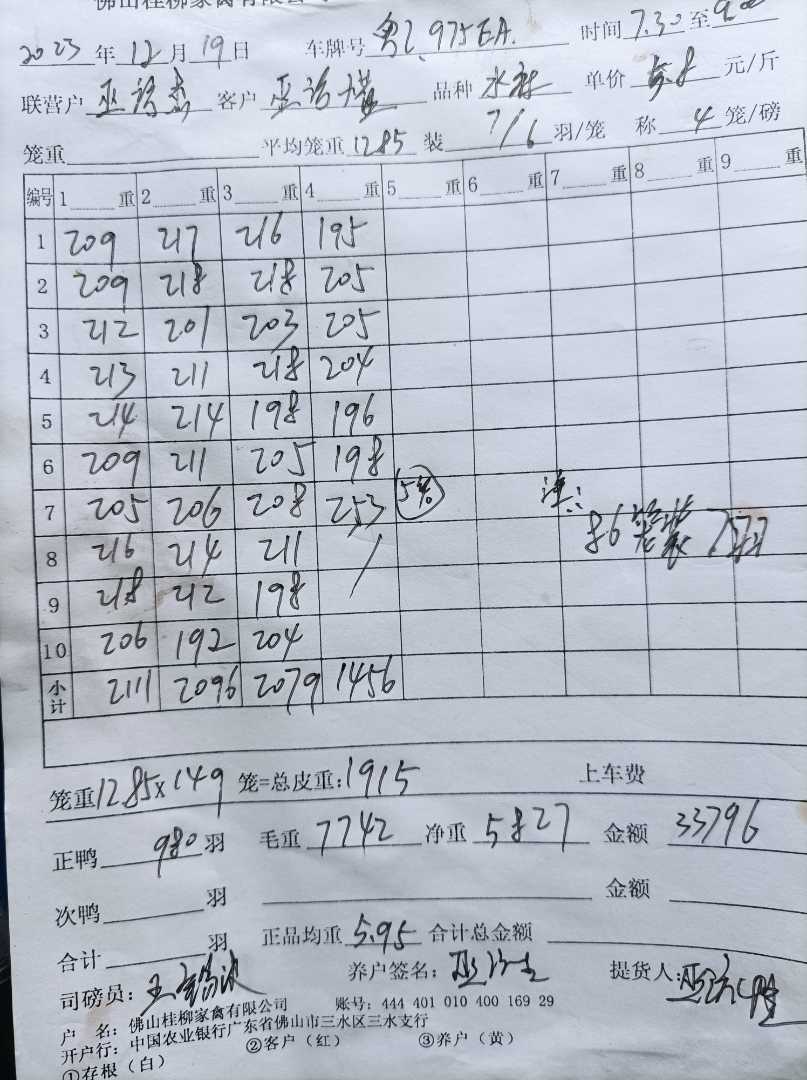 佛山桂柳家禽有限公司
2023 年 12 月 19 日 车牌号 粤L.975EA. 时间 7.30 至 9.00
联营户 巫 客户 巫 品种 水 单价 5.8 元/斤
笼重 平均笼重 1285 装 7/6 羽/笼 称 4 笼/磅
编号 1 重 2 重 3 重 4 重 5 重 6 重 7 重 8 重 9 重
1 209 217 216 195
2 209 218 218 205
3 212 201 203 205
4 213 211 218 204
5 214 214 198 196
6 209 211 205 198
7 205 206 208 253 5笼 注:
8 216 214 211 / 86笼装7羽
9 218 212 198
10 206 192 204
小计 2111 2096 2079 1456
笼重 12.85×149 笼=总皮重: 1915 上车费
正鸭 980 羽 毛重 7742 净重 5827 金额 33796
次鸭 羽 金额
合计 羽 正品均重 5.95 合计总金额
司磅员: 王 养户签名: 巫 提货人: 巫
户 名: 佛山桂柳家禽有限公司 账号: 444 401 010 400 169 29
开户行: 中国农业银行广东省佛山市三水区三水支行
①存根(白) ②客户(红) ③养户(黄)